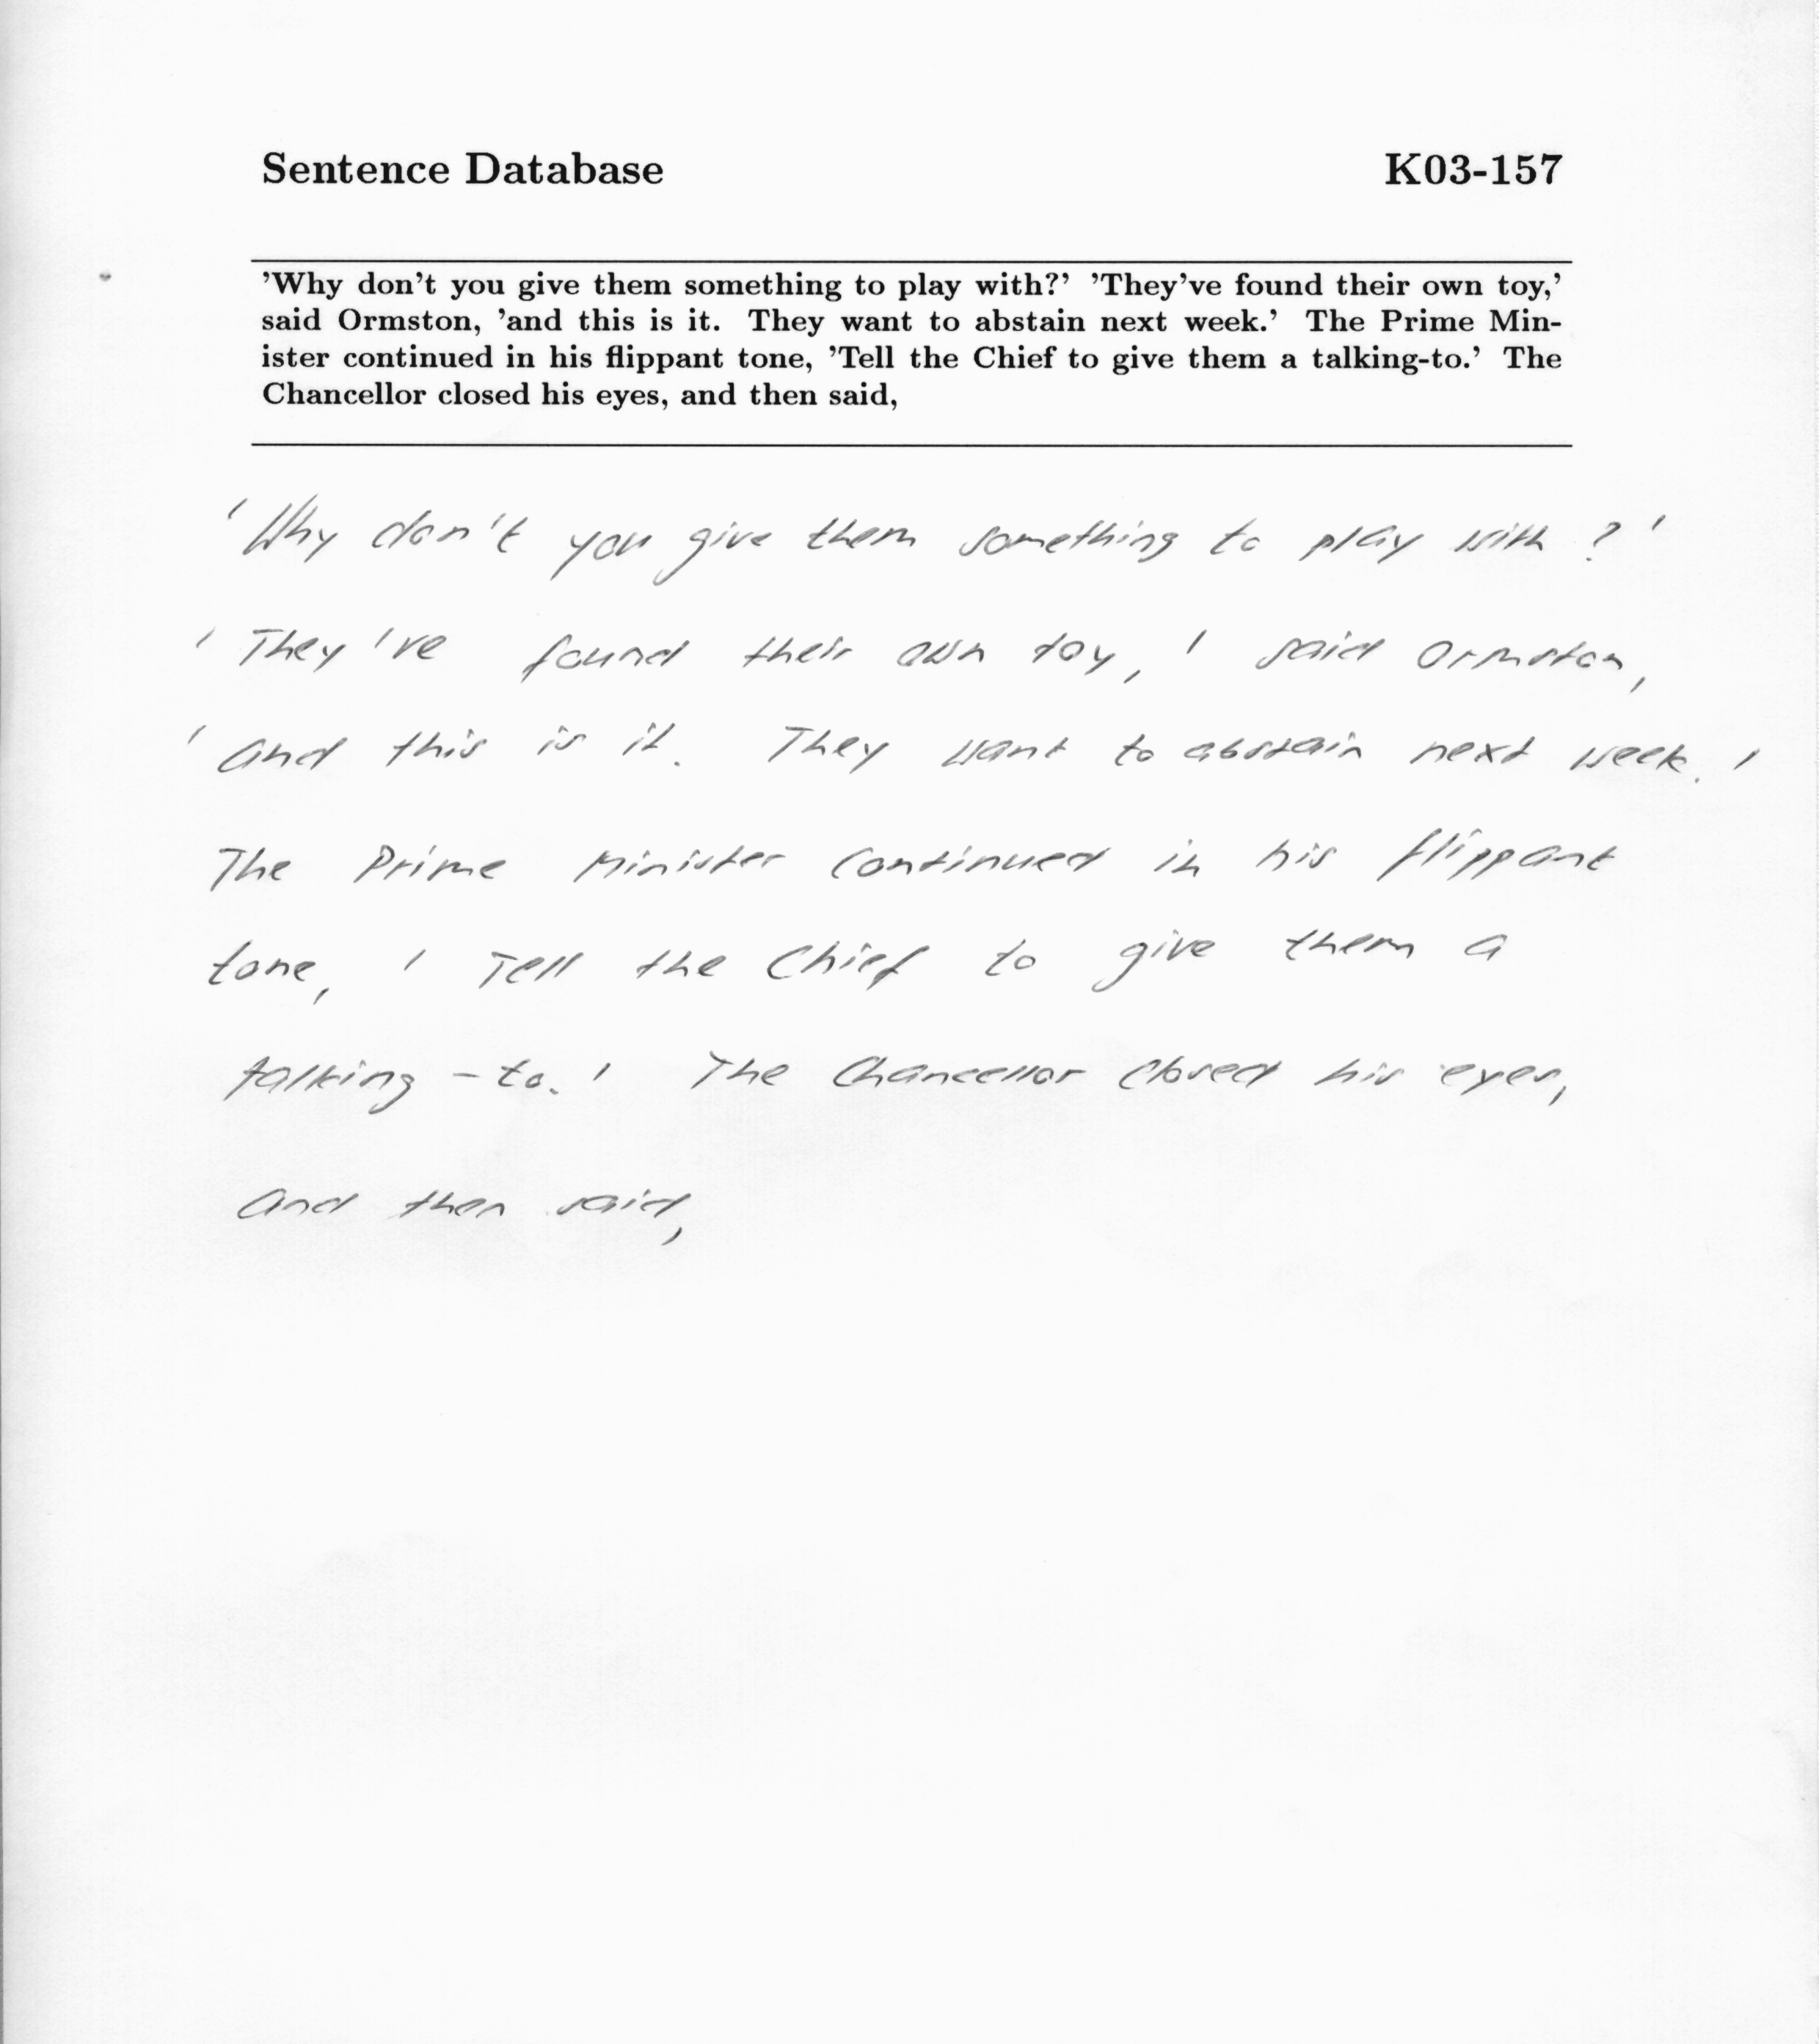 Sentence Database K03-157
'Why don't you give them something to play with?' 'They've found their own toy,'
said Ormston, 'and this is it. They want to abstain next week.' The Prime Min-
ister continued in his flippant tone, 'Tell the Chief to give them a talking-to.' The
Chancellor closed his eyes, and then said,
'Why don't you give them something to play with?'
'They've found their own toy,' said Ormston,
'and this is it. They want to abstain next week.'
The Prime Minister continued in his flippant
tone, 'Tell the Chief to give them a
talking-to.' The Chancellor closed his eyes,
and then said,